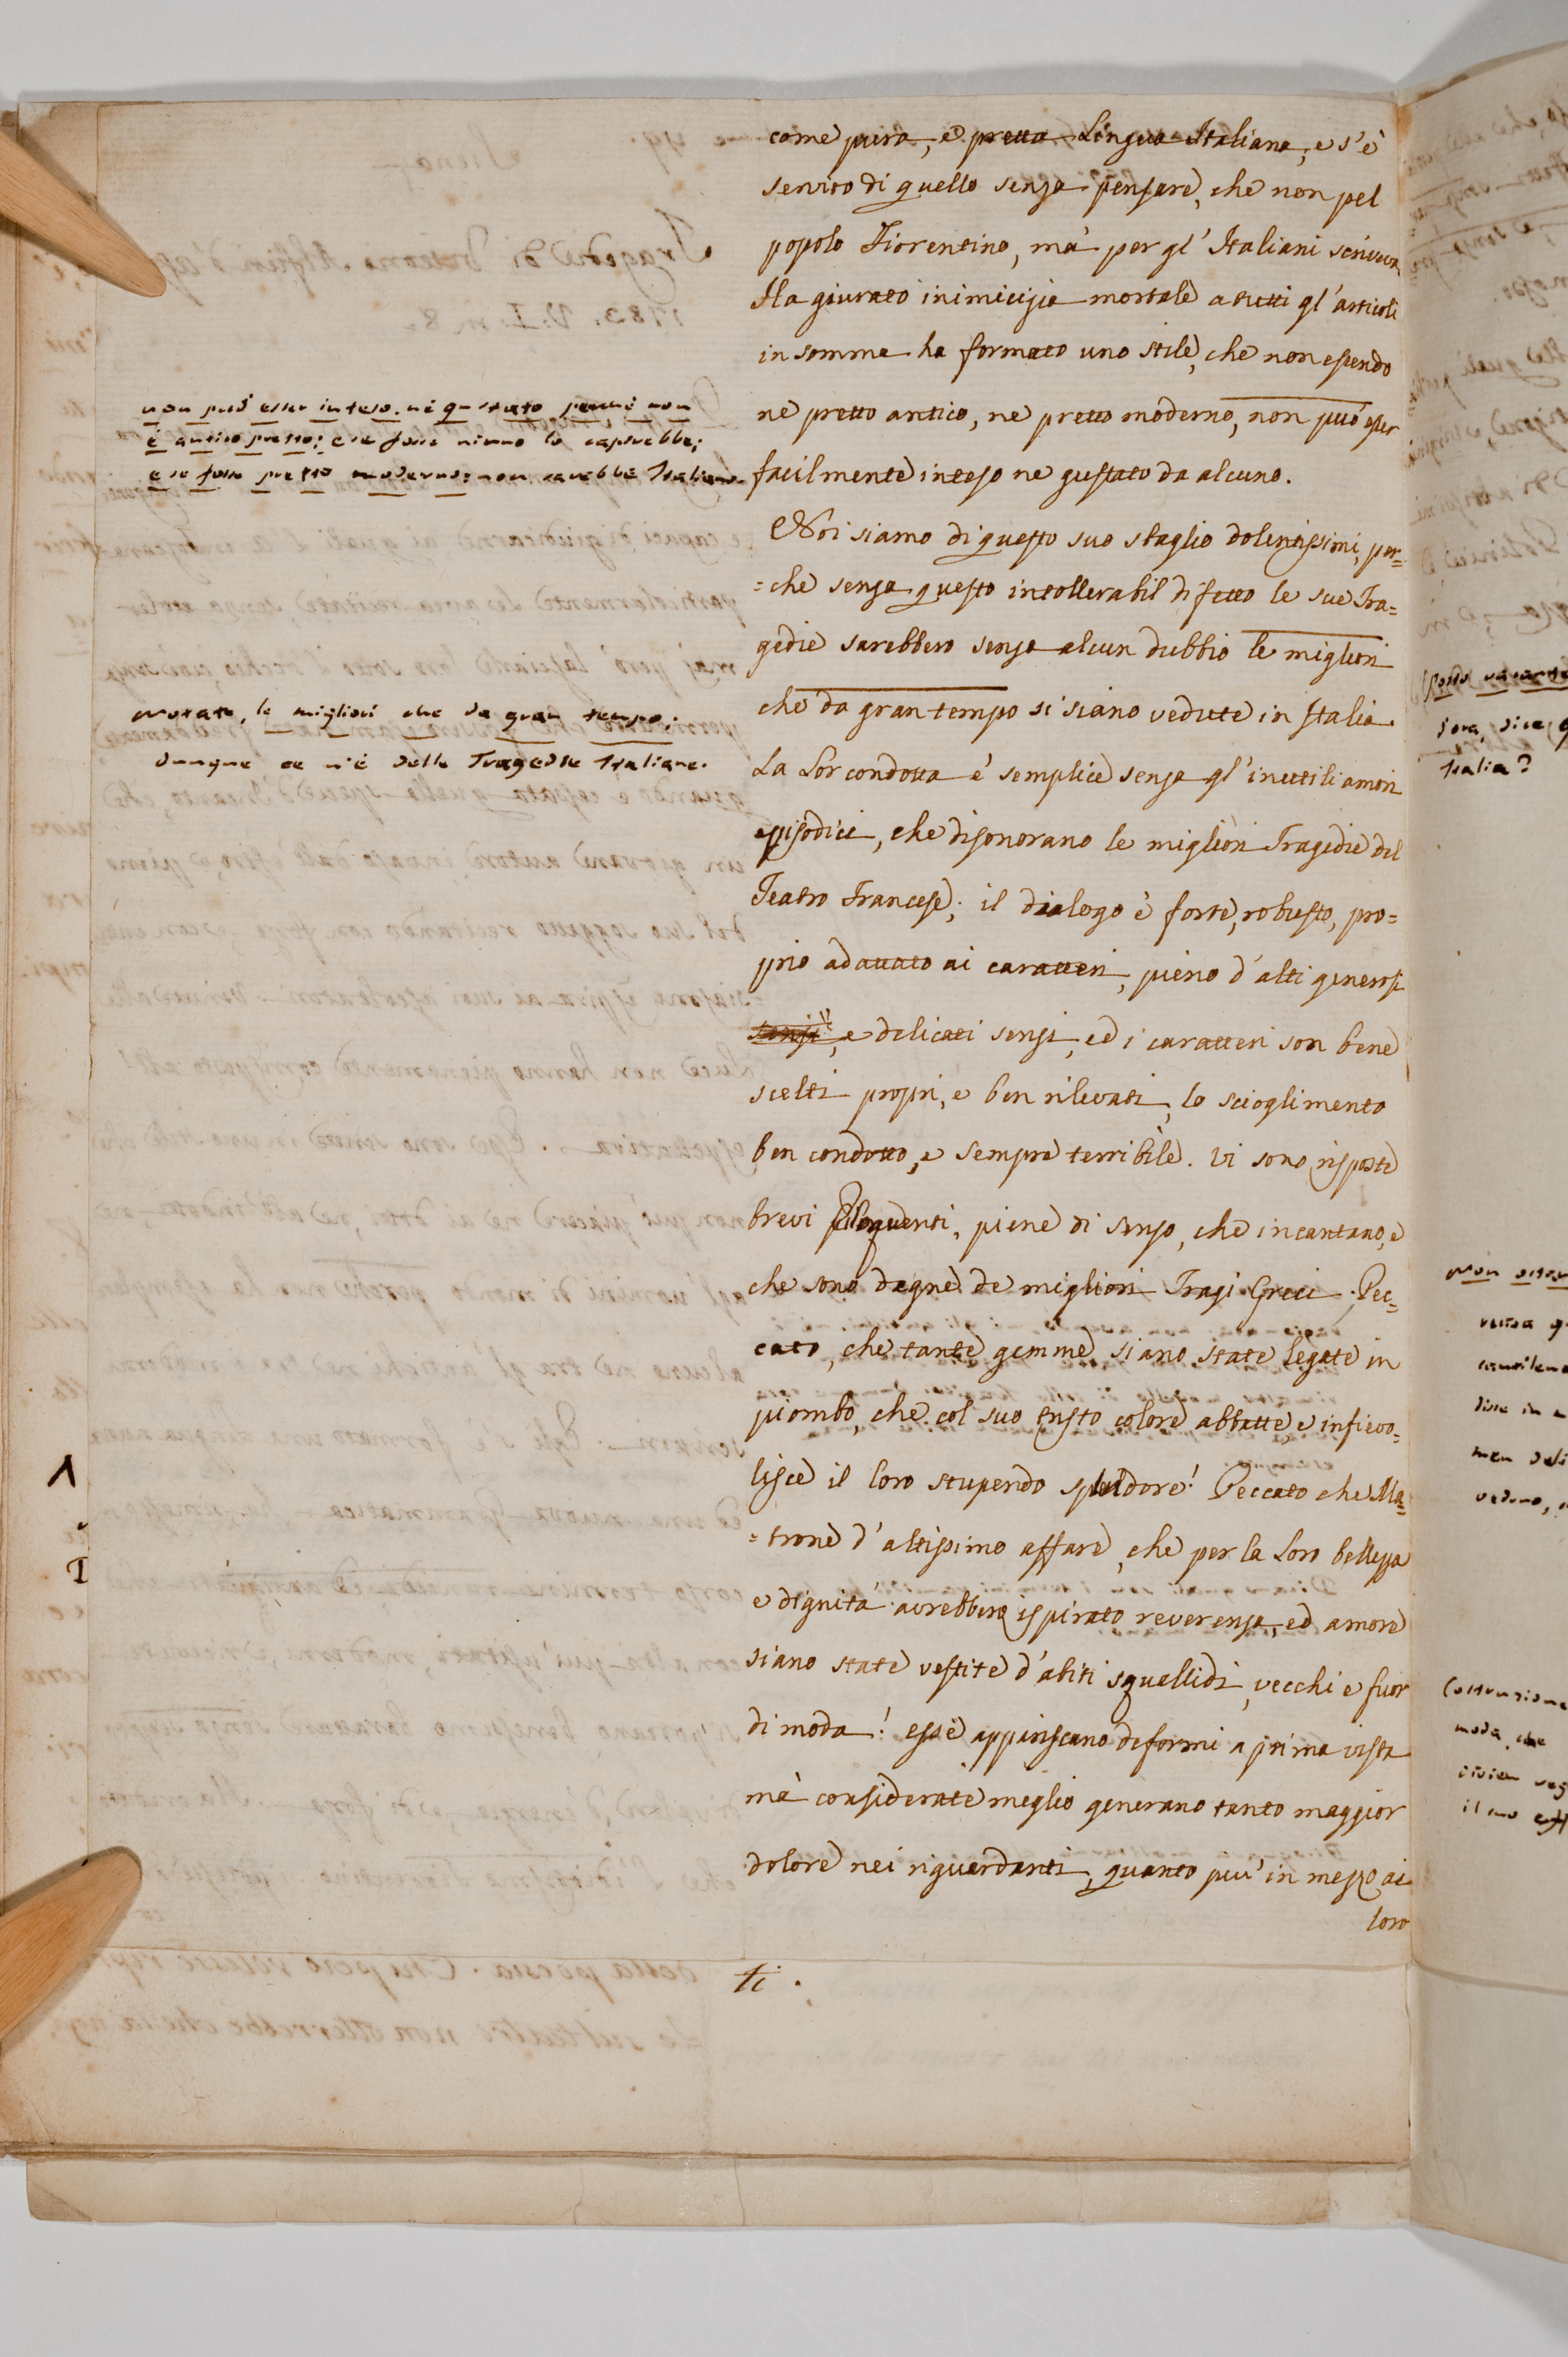 come pura, e pretta Lingua Italiana, e s'è
servito di quello senza pensare, che non pel
popolo Fiorentino, mà per gl'Italiani scriveva.
Ha giurato inimicizia mortale a tutti gl'articoli
in somma ha formato uno stile, che non essendo
ne pretto antico, ne pretto moderno, non può esser
facilmente inteso ne gustato da alcuno.
Noi siamo di questo suo sbaglio dolentissimi, per=
=che senza questo intollerabil difetto le sue Tra=
gedie sarebbero senza alcun dubbio le migliori
che da gran tempo si siano vedute in Italia.
La Lor condotta è semplice senza gl'inutili amori
episodici, che disonorano le migliori Tragedie del
Teatro Francese; il dialogo è forte, robusto, pro=
prio adattato ai caratteri, pieno d'alti generosi
sensi, e delicati sensi, ed i caratteri son bene
scelti propri, e ben rilevati, lo scioglimento
ben condotto, e sempre terribile. Vi sono risposte
brevi eloquenti, piene di senso, che incantano, e
che sono degne de migliori Tragi Greci. Pec=
cato, che tante gemme siano state legate in
piombo, che col suo tristo colore abbatte, e infievo=
lisce il loro stupendo spledore! Peccato che Ma=
=trone d'altissimo affare, che per la loro bellezza
e dignità avrebbero ispirato reverenza, ed amore
siano state vestite d'abiti squallidi, vecchi e fuor
di moda! esse appariscano deformi a prima vista
mà considerate meglio generano tanto maggior
dolore nei riguardanti, quanto più in mezzo ai
loro
ti.
non può esser inteso, nè gustato perchè non
è antico pretto; e se fosse niuno lo capirebbe;
e se fosse pretto moderno; non sarebbe Italiano.
Notate, le migliori che da gran tempo;
dunque ce n'è delle Tragedie Italiane.
Italia?